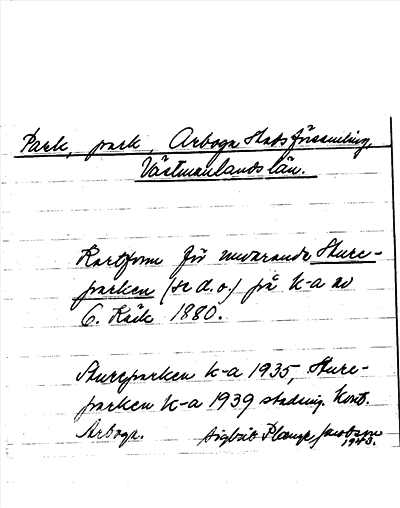 Park, park, Arboga Stadsförsamling,
Västmanlands län.
Kartform för nuvarande Sture-
parken (se d.o.) på k-a av
G. Räik 1880.
Stureparken k-a 1935, Sture-
parken k-a 1939 stading. kont.
Arboga. Sigbrit Plænge Jacobson
1943.